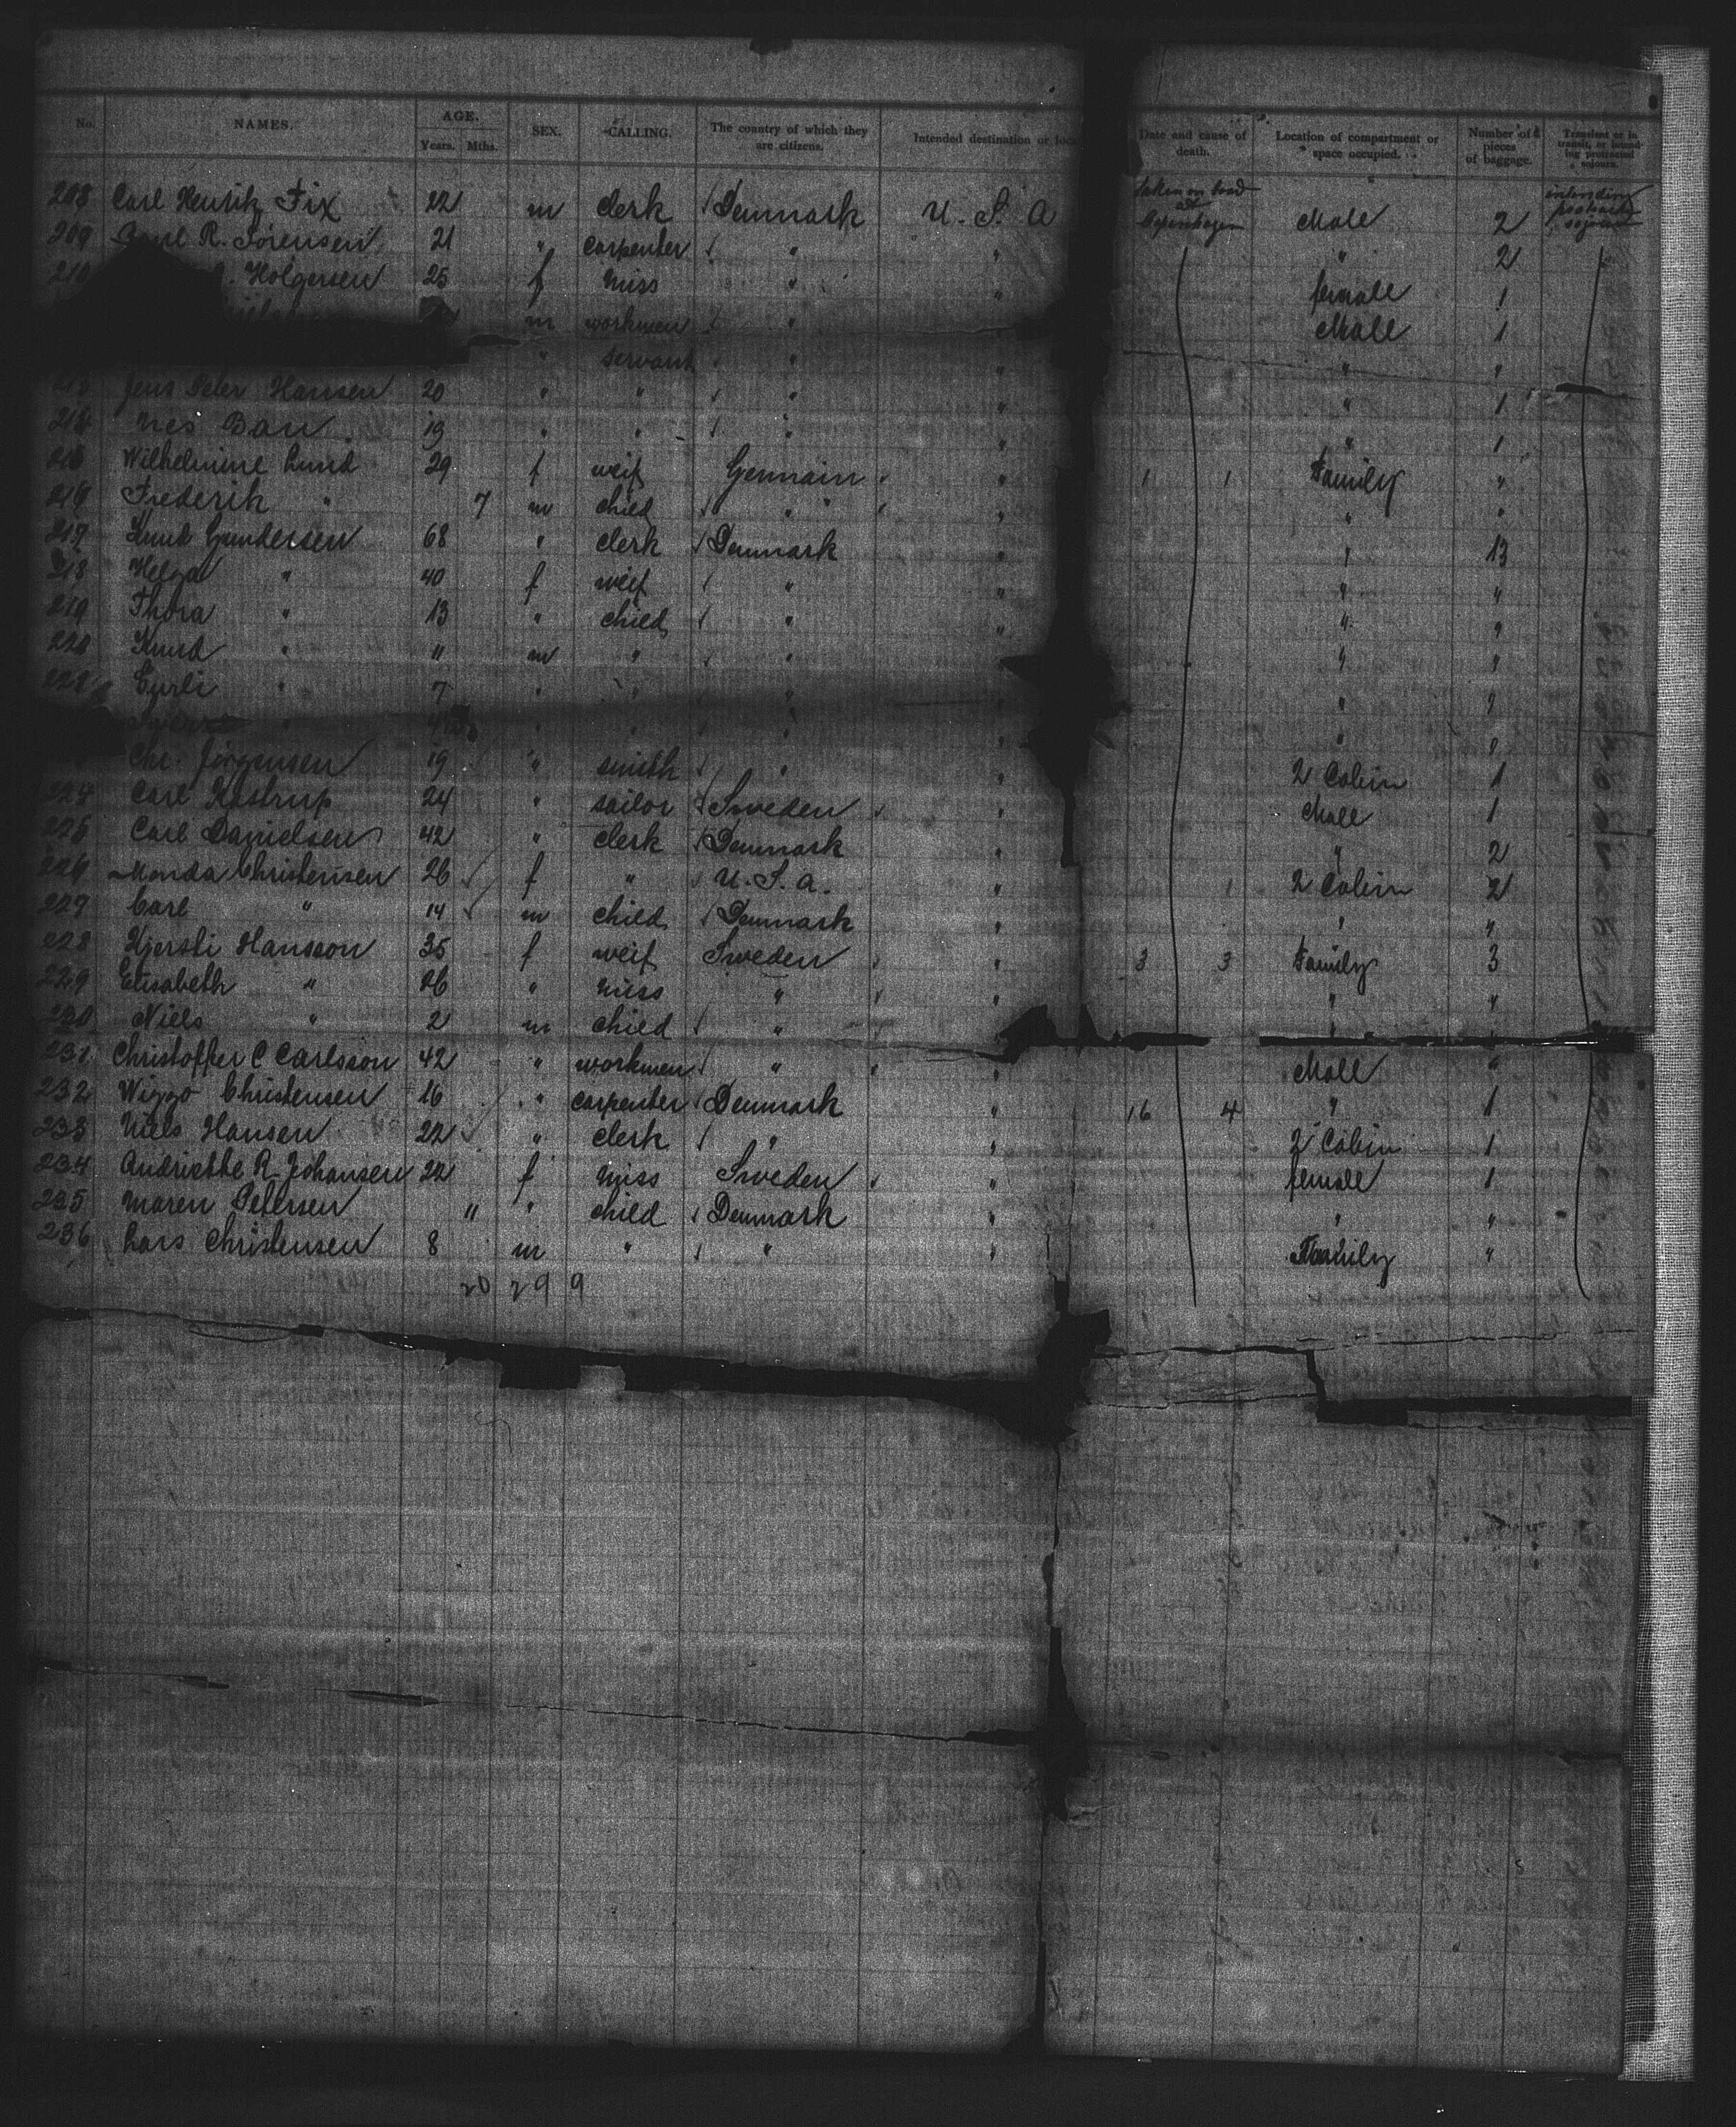 No. NAMES. AGE. Years. Mths. SEX. CALLING. The country of which they are citizens. Intended destination or Date and cause of death. Location of compartment or space occupied. Number of pieces of baggage. Transient or in transit, or intending protracted sojourn.
208 Carl Henrik Fix 22 m clerk Denmark U. S. A taken on bord Copenhagen Male 2 intending
209 R. Sørensen 21 " carpenter " " " 2
210 Holgersen 25 f miss " " female 1
m workmen " " Male 1
" servant " " " "
213 Jens Peter Hansen 20 " " " " " 1
214 19 " " " " " 1
215 Wilhelmine Lund 29 f weif Germain " 1 1 Family "
216 Frederik " 7 m child " " " "
217 Knud Gundersen 68 " clerk Denmark " " 13
218 Helga " 40 f weif " " " "
219 Thora " 13 " child " " " "
220 Knud " " m " " " " "
Gurli " 7 " " " " " "
" " " " " "
Chr. Jørgensen 19 " smith " " 2 Cabin 1
224 Carl Kastrup 24 " sailor Sweden " Male 1
225 Carl Danielsen 42 " clerk Denmark " " 2
226 Christensen 26 f " U. S. a. " 1 2 Cabin 2
227 Carl " 14 m child Denmark " "
228 Kjersti Hansson 35 f weif Sweden " 3 3 Family 3
229 Elisabeth " " miss " " " "
230 Niels " 2 m child "
231 Christoffer C Carlsson 42 " workmen " " Male "
232 Wiggo Christensen 16 " carpenter Denmark " 16 4 " 1
233 Niels Hansen 22 " clerk " " 2 Cabin 1
234 Andriette R. Johansen 22 f miss Sweden " female 1
235 Maren Petersen " " child Denmark " " "
236 Lars Christensen 8 m " " " Family "
20 29 9